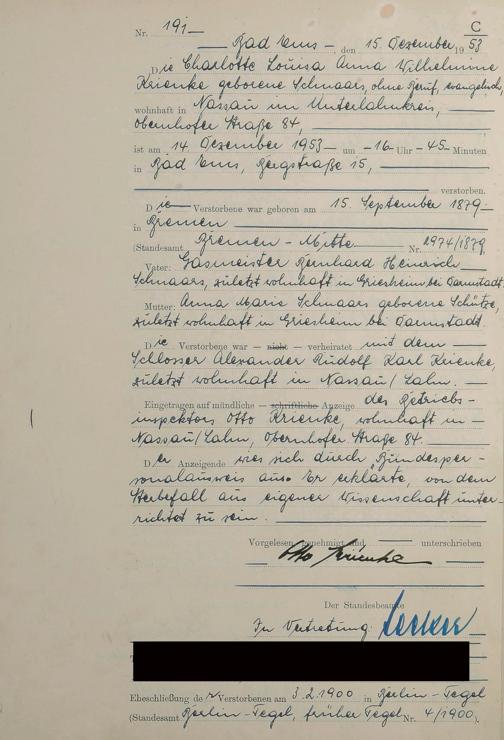 C
Nr. 191
53
Bad Ems, den 15. Dezember 19
Die Charlotte Louisa Anna Wilhelmine
Krienke geborene Schnaars, ohne Beruf, evangelisch,
wohnhaft in Nassau im Unterlahnkreis,
Obernhofer Straße 84,
ist am 14. Dezember 1953 um 16 Uhr 45 Minuten
in Bad Ems, Bergstraße 15,
verstorben.
Die Verstorbene war geboren am 15. September 1879
in Bremen
(Standesamt Bremen-Mitte Nr. 2974/1879
Vater: Gasmeister Bernhard Heinrich
Schnaars, zuletzt wohnhaft in Griesheim bei Darmstadt.
Mutter: Anna Marie Schnaars geborene Schütze,
zuletzt wohnhaft in Griesheim bei Darmstadt.
Die Verstorbene war — nicht — verheiratet mit dem
Schlosser Alexander Rudolf Karl Krienke,
zuletzt wohnhaft in Nassau/Lahn.
Eingetragen auf mündliche — schriftliche — Anzeige des Betriebs-
inspektors Otto Krienke, wohnhaft in
Nassau/Lahn, Obernhofer Straße 84.
Der Anzeigende wies sich durch Bundesper-
sonalausweis aus. Er erklärte, von dem
Sterbefall aus eigener Wissenschaft unter-
richtet zu sein.
Vorgelesen, genehmigt und unterschrieben
Otto Krienke
Der Standesbeamte
In Vertretung:
Eheschließung der Verstorbenen am 3.2.1900 in Berlin-Tegel
(Standesamt Berlin-Tegel, früher Tegel Nr. 4/1900).